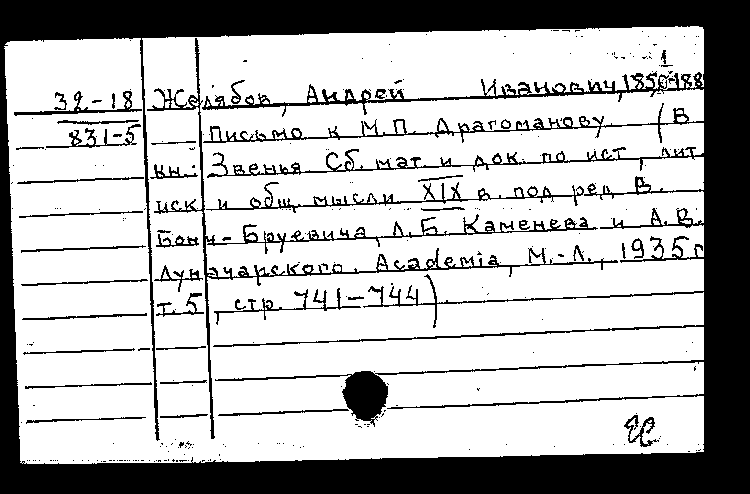 1
32-18 Желябов, Андрей Иванович, 1850-188
831-5 Письмо к М.П. Драгоманову (В
кн.: Звенья Сб. мат. и док. по ист, лит.
иск и общ. мысли XIX в. под ред В.
Бонч-Бруевича, Л.Б. Каменева и А.В.
Луначарского. Academia, М.-Л., 1935 г
т. 5, стр. 741-744).